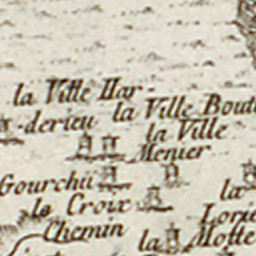 la Ville Har-
derieu la Ville Bout
la Ville
Menier
Gourchü la
la Croix Lorie
Chemin
la Motte